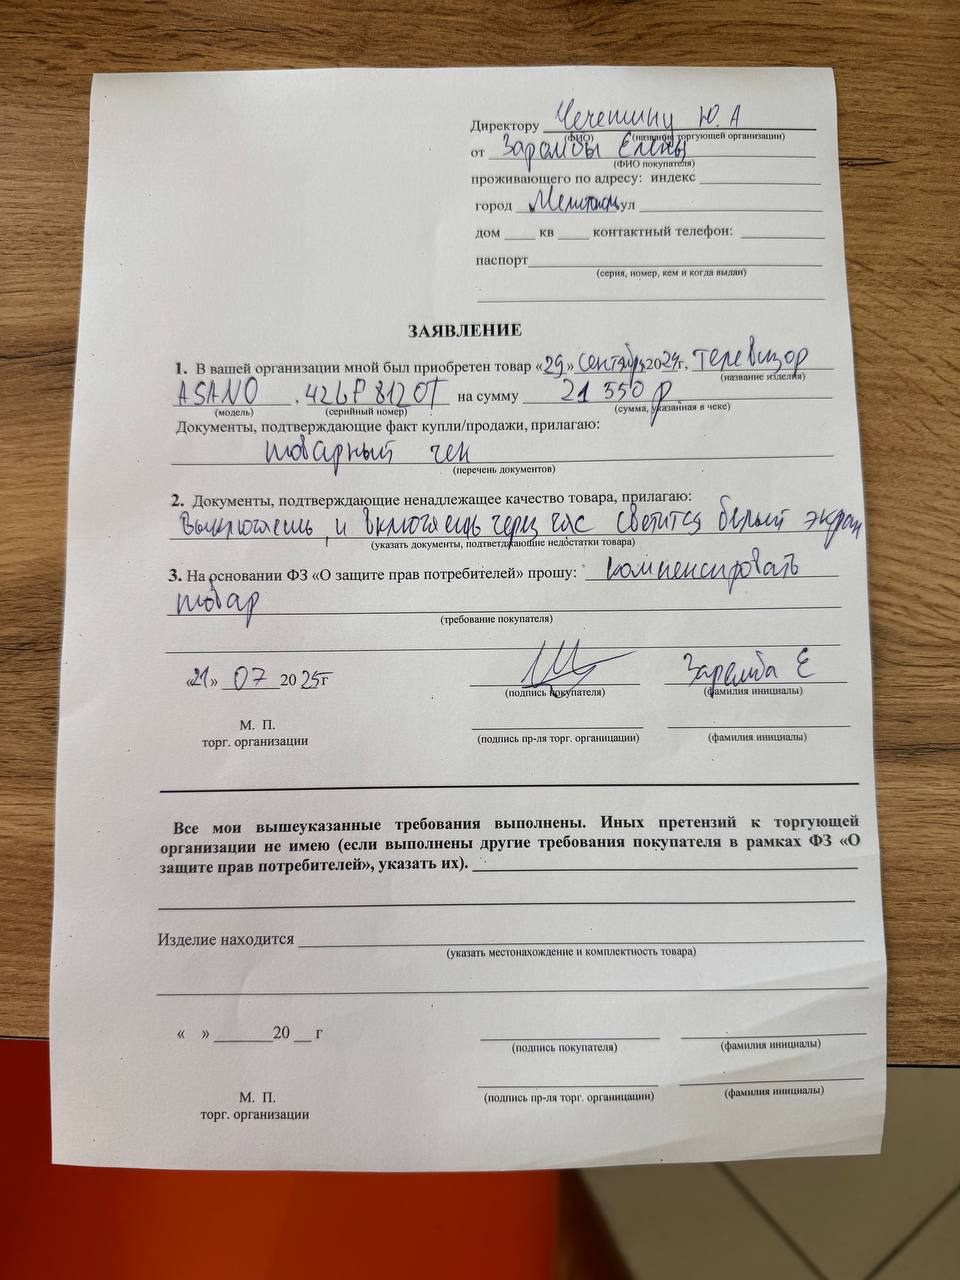 Директору Черепину Ю.А
(ФИО) (название торгующей организации)
от Зарембы Елены
(ФИО покупателя)
проживающего по адресу: индекс
город ул
дом ____ кв ____ контактный телефон:
паспорт
(серия, номер, кем и когда выдан)
ЗАЯВЛЕНИЕ
1. В вашей организации мной был приобретен товар «29» сентября 2024г, телевизор
(название изделия)
ASANO , 42LF8120T на сумму 21 550 р
(модель) (серийный номер) (сумма, указанная в чеке)
Документы, подтверждающие факт купли/продажи, прилагаю:
товарный чек
(перечень документов)
2. Документы, подтверждающие ненадлежащее качество товара, прилагаю:
Выключаешь, и включаешь через час светится белый экран
(указать документы, подтверждающие недостатки товара)
3. На основании ФЗ «О защите прав потребителей» прошу: компенсировать
товар
(требование покупателя)
«21» 07 2025г Заремба Е
(подпись покупателя) (фамилия инициалы)
М. П.
торг. организации (подпись пр-ля торг. органицации) (фамилия инициалы)
Все мои вышеуказанные требования выполнены. Иных претензий к торгующей
организации не имею (если выполнены другие требования покупателя в рамках ФЗ «О
защите прав потребителей», указать их).
Изделие находится
(указать местонахождение и комплектность товара)
« » _______20 __ г
(подпись покупателя) (фамилия инициалы)
М. П. (подпись пр-ля торг. органицации) (фамилия инициалы)
торг. организации